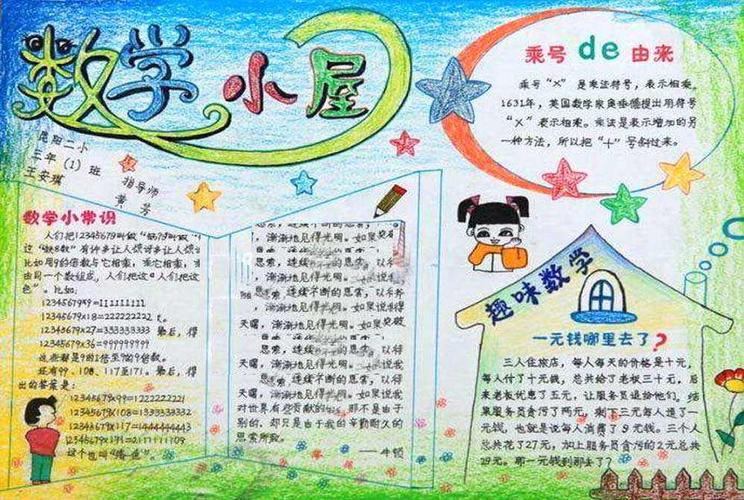 数学小屋
昆阳二小
三年（1）班
王安琪
指导师
黄芳
乘号 de 由来
乘号“×”是乘法符号，表示相乘。
1631年，英国数学家奥垂德提出用符号
“×”表示相乘。乘法是表示增加的另
一种方法，所以把“+”号斜过来。
数学小常识
人们把12345679叫做“缺8数”
这“缺8数”有许多让人惊讶
比如用9的倍数与它相乘，乘它相乘，
由同一个数组成，人们把这叫
色”。比如：
12345679×9=111111111
12345679×18=222222222
12345679×27=333333333 最后，得
12345679×36=999999999
这些都是9的1倍至9的9倍数。
还有99、108、117至171。最后，得
出的答案是：
12345679×99=1222222221
12345679×108=1333333332
12345679×117=1444444443
12345679×171=2111111109
这个也叫“清一色”
思索，连续不断的思索，以待
天曙，渐渐地见得光明。如果说我
对世界有些贡献的话，那不是由于
别的，却只是由于我的辛勤耐久的
思索所致。
——牛顿
趣味数学
一元钱哪里去了？
三人住旅店，每人每天的价格是十元，
每人付了十元钱，总共给了老板三十元，后
来老板优惠了五元，让服务员退给他们。结
果服务员贪污了两元，剩下三元每人退了一
元钱，也就是说每人消费了9元钱。三个人
总共花了27元，加上服务员贪污的2元总共
29元。那一元钱到哪去了？